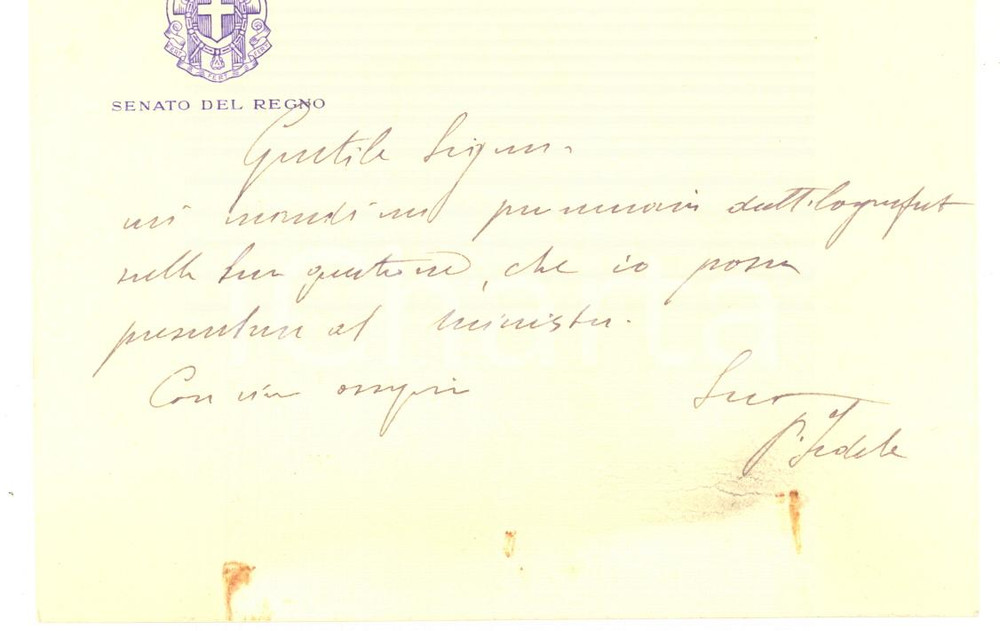 FERT FERT FERT
SENATO DEL REGNO
Gentile Signora
mi mandi un promemoria dattilografat
sulla Sua questione, che io possa
presentare al Ministro.
Con vivi ossequi
Suo
P. Fedele